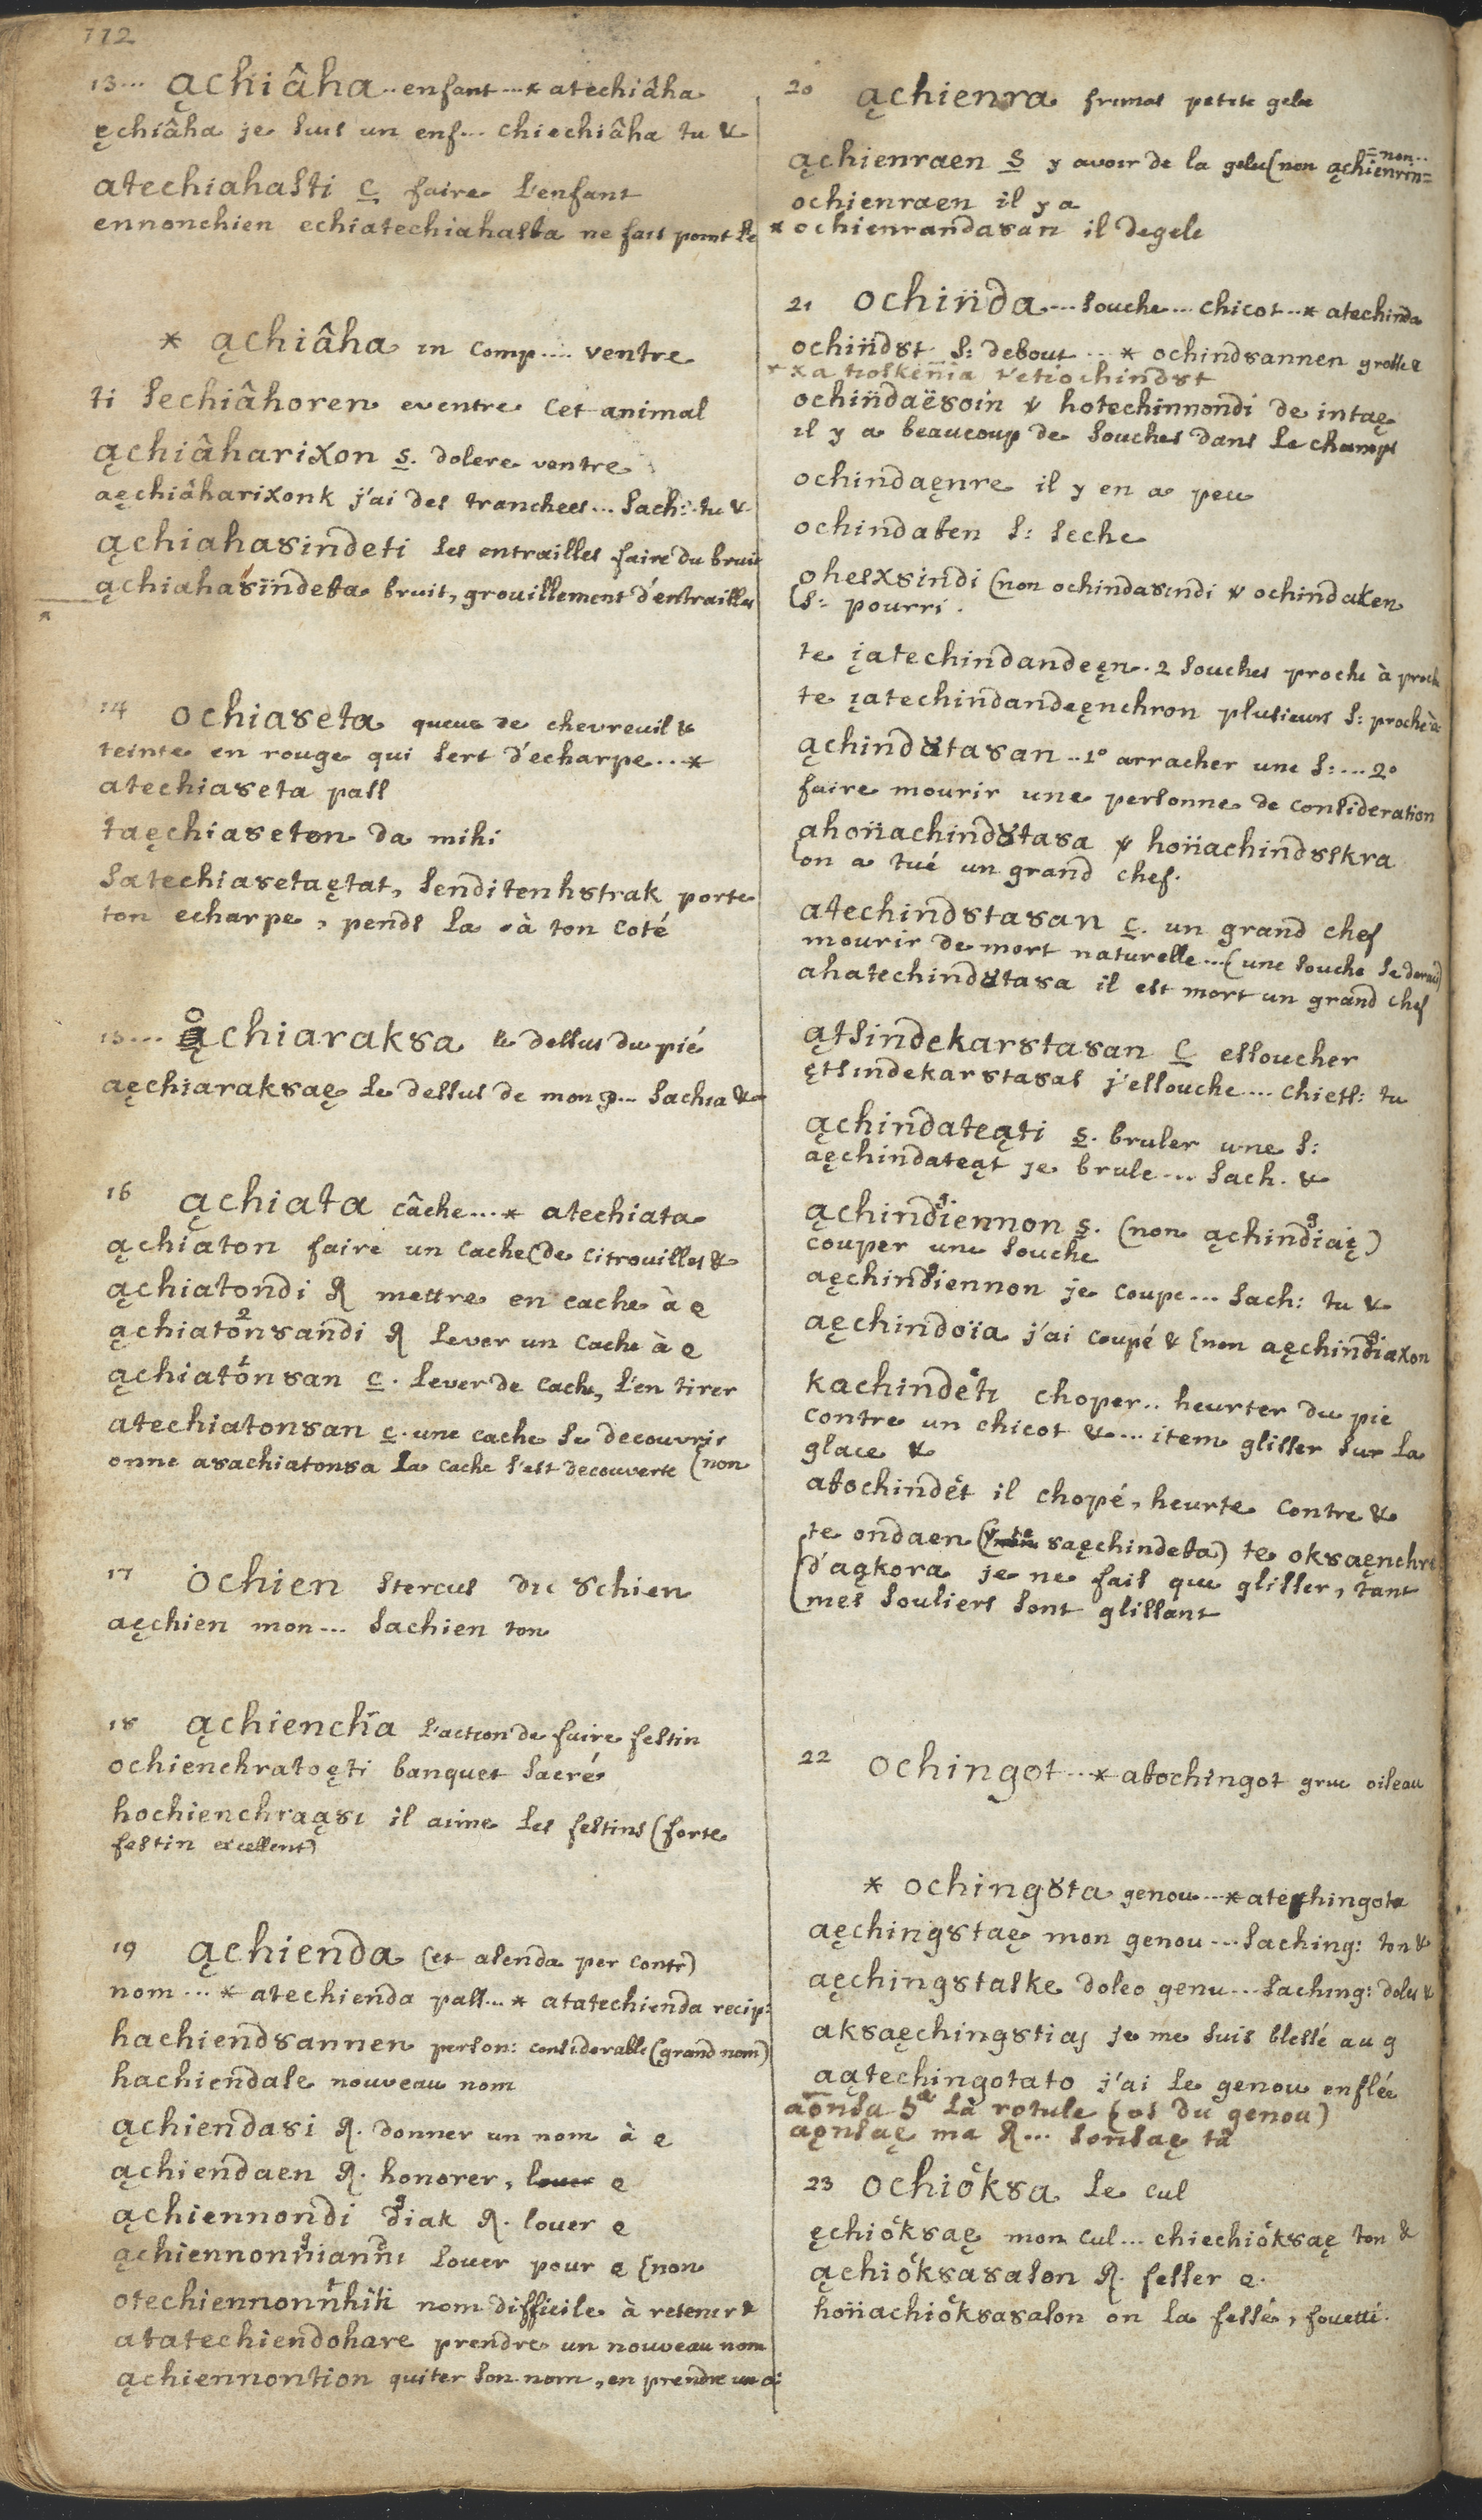 112
13... ąchiâha.. enfant...* atechiâha
ęchiâha je suis un enf... chiechiâha tu &
atechiahasti C faire l'enfant
ennonchien echiatechiahasta ne fais point le
* ąchiâha in comp.... ventre
ti sechiâhoren eventre cet animal
ąchiâhariXon S. dolere ventre
aęchiâhariXonk j'ai des tranchees... sach: tu &
ąchiaha8indeti les entrailles faire du bruit
ąchiaha8indeta bruit, grouillement d'entrailles
14 ochia8eta queue de chevreuil &
teinte en rouge qui sert d'echarpe...*
atechia8eta pass
taęchia8eton da mihi
satechia8etaętat, senditenh8trak porte
ton echarpe, pends la à ton coté
15... ąchiarak8a le dessus du pié
aęchiarak8aę le dessus de mon p... sachia &
16 ąchiata câche...* atechiata
ąchiaton faire un cache (de citrouilles &
ąchiatondi R mettre en cache à e
ąchiaton8andi R lever un cache à e
ąchiaton8an C. lever de cache, l'en tirer
atechiaton8an C. une cache se decouvrir
onne a8achiaton8a la cache s'est decouverte (non
17 ochien stercus du 8chien
aęchien mon... sachien ton
18 ąchienchia l'action de faire festin
ochienchratoęti banquet sacré
hochienchraą8i il aime les festins (forte
festin excellent)
19 ąchienda (et asenda per contr)
nom...* atechienda pass...* atatechienda recip:
hachiend8annen person: considerable (grand nom)
hachiendase nouveau nom
ąchienda8i R. donner un nom à e
ąchiendaen R. honorer, louer e
ąchiennondi diak R. louer e
ąchiennonnianni louer pour e (non
otechiennonnhiti nom difficile à retenir &
atatechiendohare prendre un nouveau nom
ąchiennontion quiter son nom, en prendre un a:
20 ąchienra frimas petite gelee
ąchienraen S y avoir de la gelee (non ąchienrin=
=non..
ochienraen il y a
* ochienranda8an il degele
21 ochinda... souche... chicot...* atechinda
ochind8t s: debout...* ochind8annen grosse &
ochindaë8oin & hotechinnondi de intaę
il y a beaucoup de souches dans le champs
ochindaęnre il y en a peu
ochindaten s: seche
ohesX8indi (non ochinda8indi & ochindaten
s: pourri.
te įatechindandeęn. 2 souches proche à proch
te įatechindandeęnchron plusieurs s: proche à
ąchind8ta8an.. 1° arracher une s:... 2°
faire mourir une personne de consideration
ahonachind8ta8a & honachind8skra
on a tué un grand chef.
atechind8ta8an C. un grand chef
mourir de mort naturelle... (une souche se derac)
ahatechind8ta8a il est mort un grand chef
ątsindekar8ta8an C essoucher
ętsindekar8ta8as j'essouche.... chiets: tu
ąchindateąti S. bruler une s:
aęchindateąt je brule... sach. &
ąchindiennon S. (non ąchindiaį)
couper une souche
aęchindiennon je coupe... sach: tu &
aęchindoïa j'ai coupé & (non aęchindiaXon
kachindeti choper.. heurter du pié
contre un chicot &... item glisser sur la
glace &
atochindet il chopé, heurte contre &
te ondaen (te saęchindeta) te ok8aęnchre
d'aąkora je ne fais que glisser, tant
mes souliers sont glissant
22 ochingot...* atochingot grue oiseau
* oching8ta genou...* atechingota
aęching8taę mon genou... saching: ton &
aęching8taske doleo genu... saching: doles &
ak8aęching8tias je me suis blessé au g
aątechingotato j'ai le genou enflée
aonsa 5ª la rotule (os du genou)
aęnsaę ma R... sonsaę ta
23 ochiok8a le cul
ęchiok8aę mon cul... chiechiok8aę ton &
ąchiok8a8ason R. fesser e.
honachiok8a8ason on la fessé, fouetté.